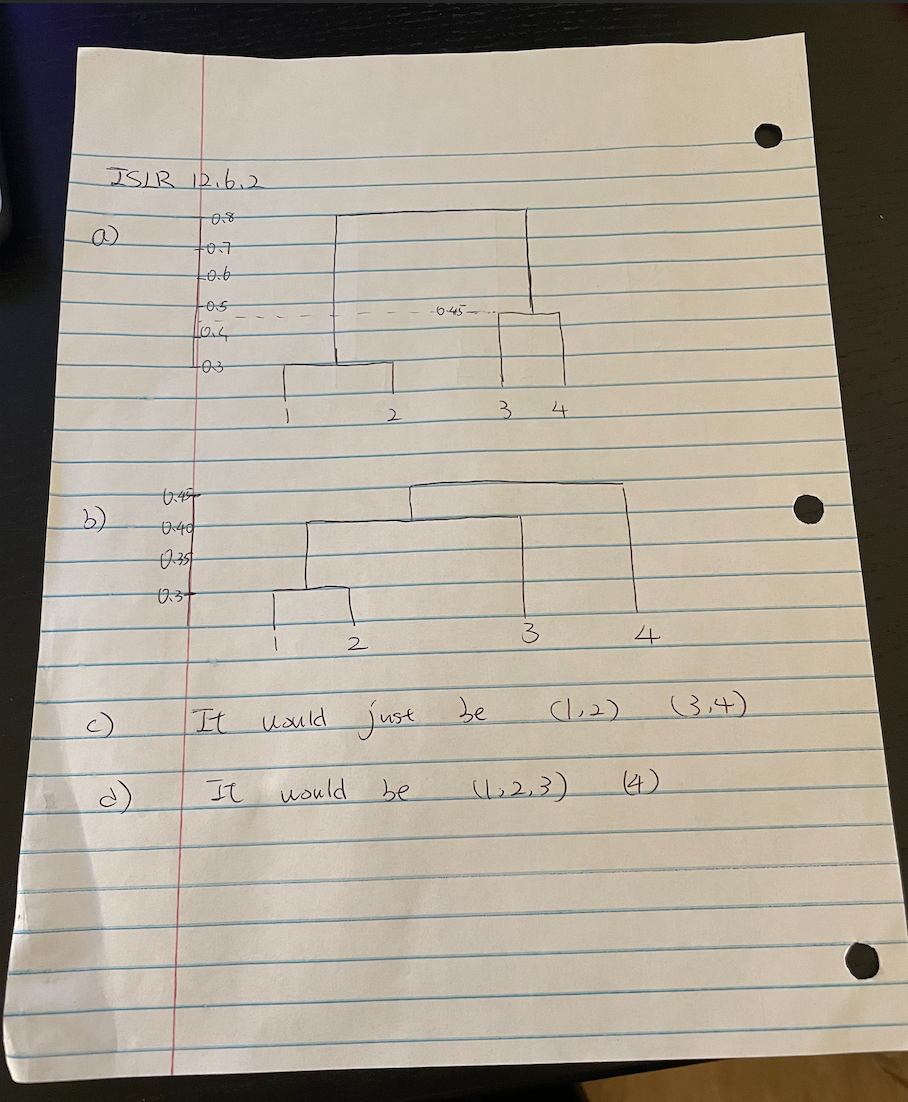 ISLR 12.6.2
a)
0.8
0.7
0.6
0.5
0.45
0.4
0.3
1 2 3 4
b)
0.45
0.40
0.35
0.3
1 2 3 4
c) It would just be (1,2) (3,4)
d) It would be (1,2,3) (4)